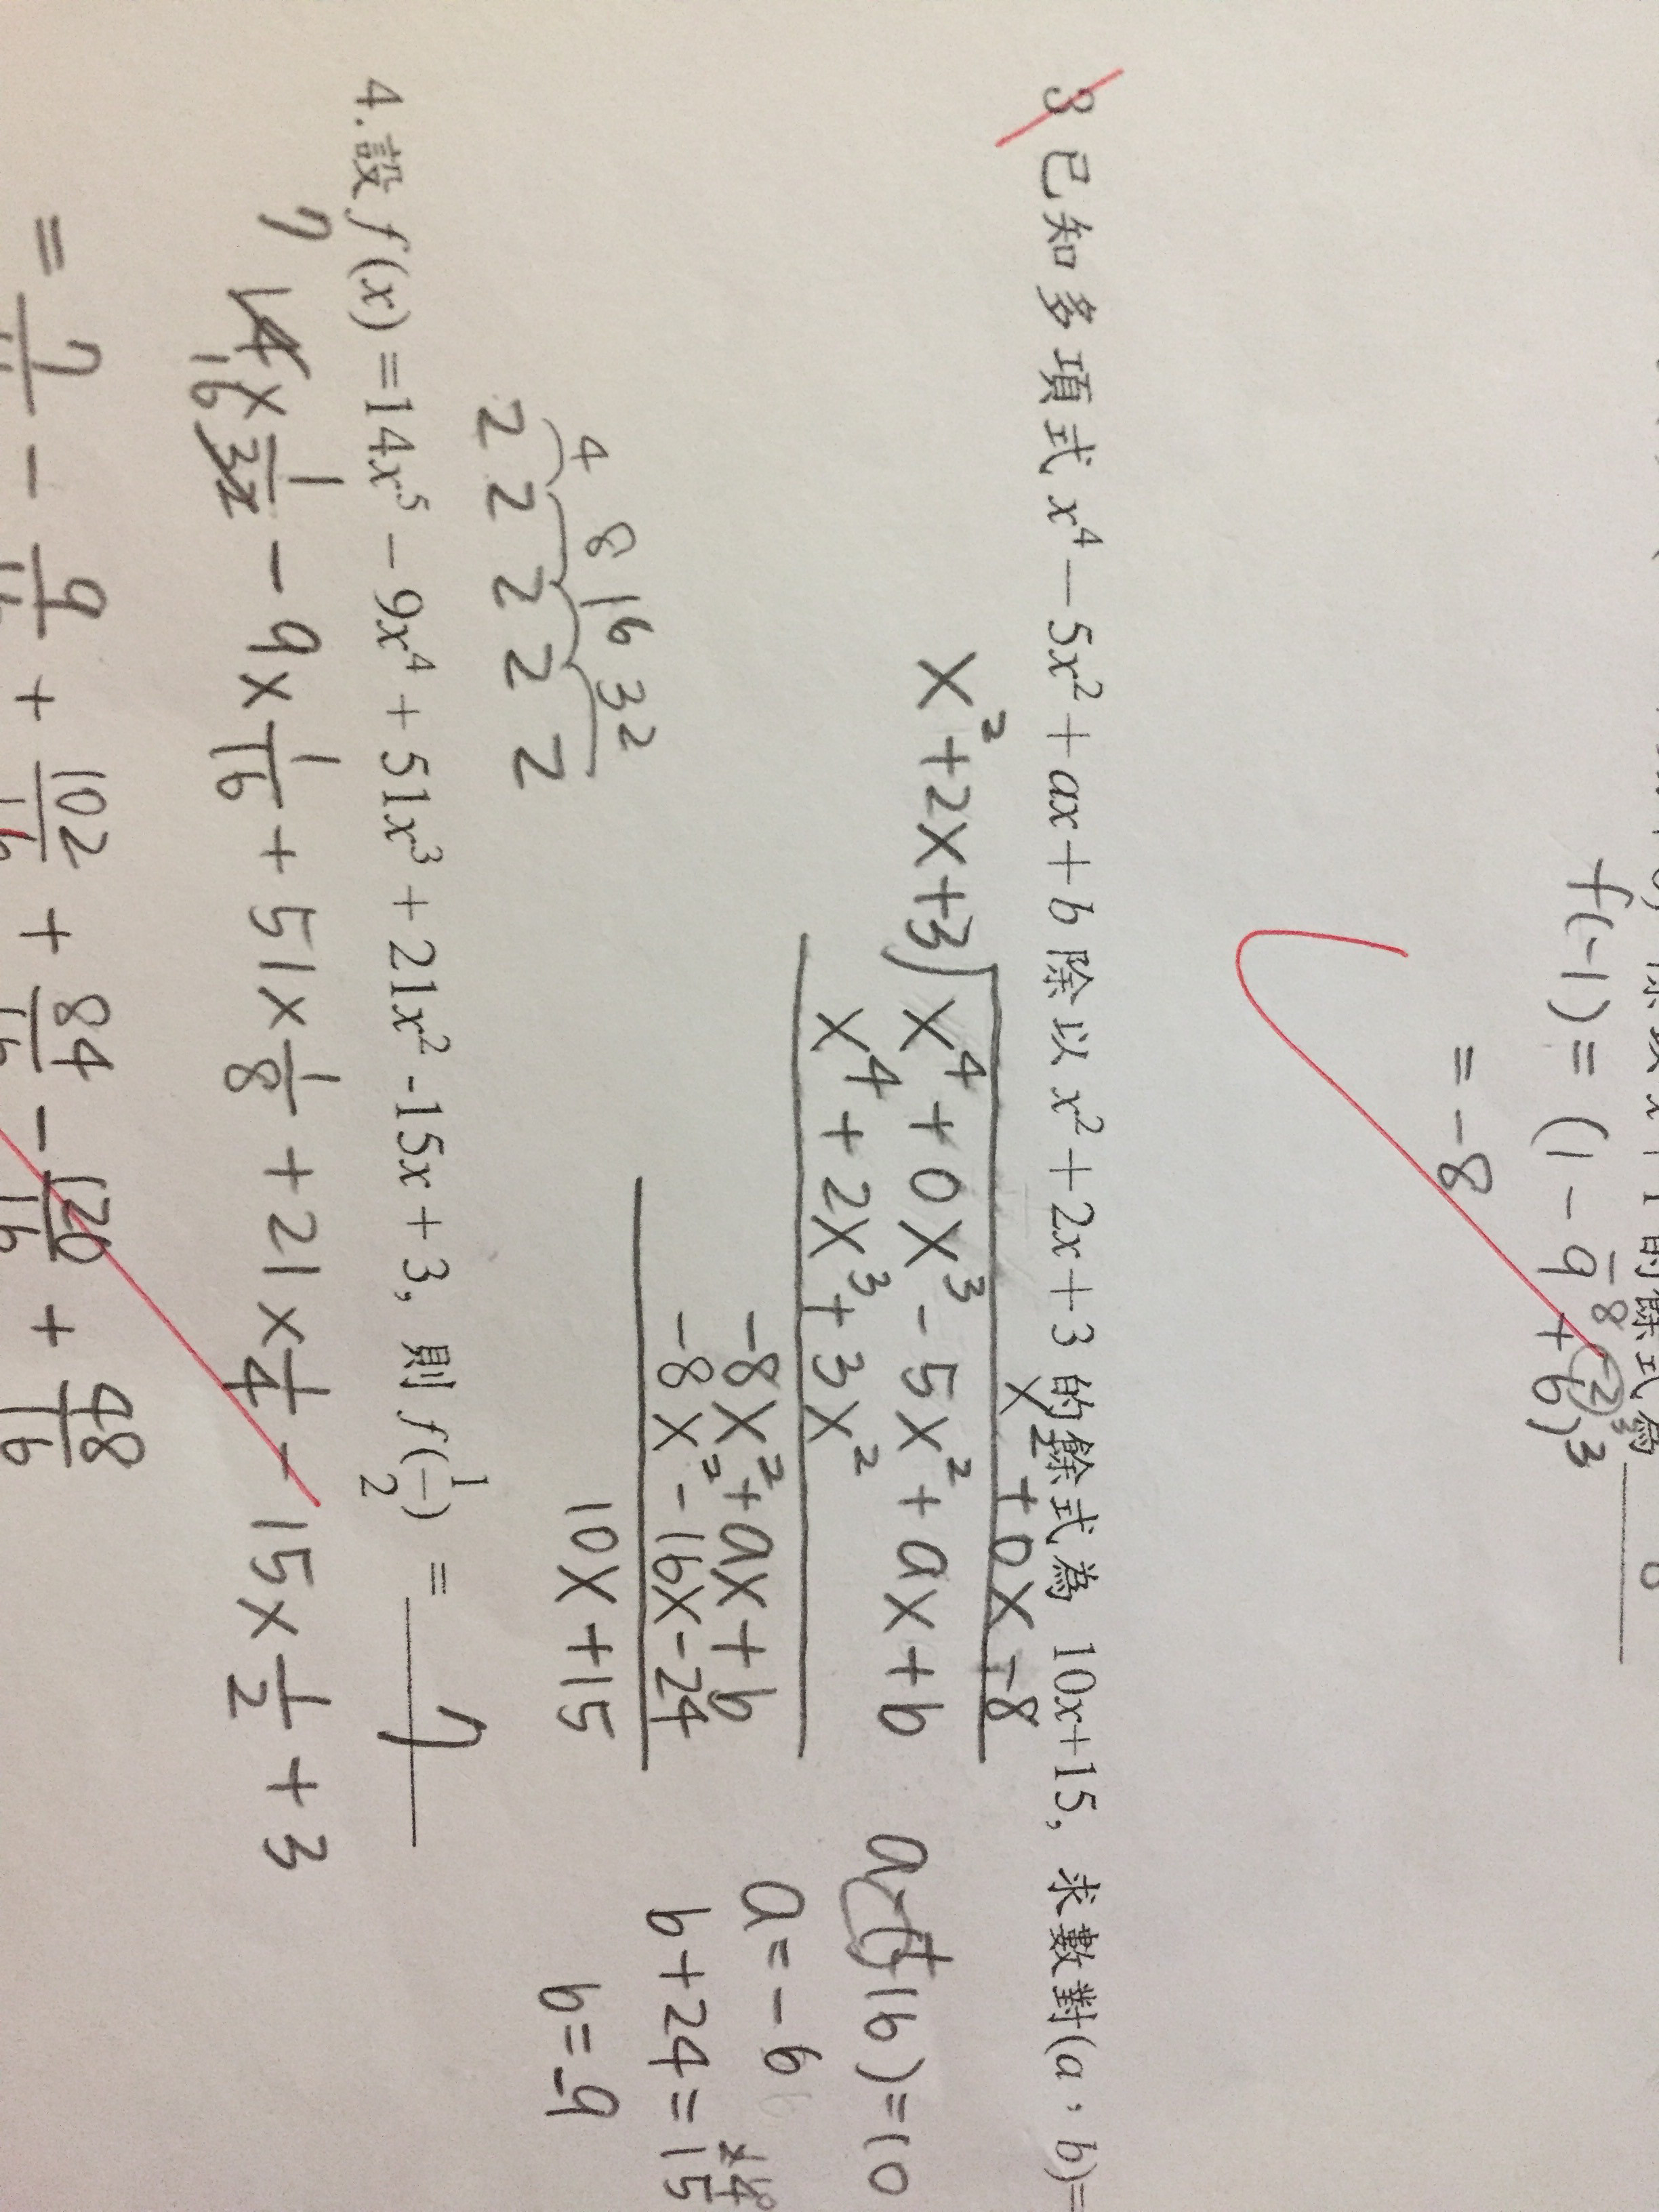 除以 x+1 的餘式為
f(-1) = (1 - 9 + 6)³
= -8
3 已知多項式 x⁴－5x²＋ax＋b 除以 x²＋2x＋3 的餘式為 10x+15, 求數對(a，b)=
x² + 0x - 8
x²+2x+3) x⁴ + 0x³ - 5x² + ax + b
x⁴ + 2x³ + 3x²
-8x² + ax + b
-8x² - 16x - 24
10x + 15
a+16)=10
a = -6
b+24=15
b=-9
4 8 16 32
2 2 2 2 2
4.設 f(x) =14x⁵ – 9x⁴ + 51x³ + 21x² -15x + 3, 則 f(1/2) = 7
7
14 × 1/32 - 9 × 1/16 + 51 × 1/8 + 21 × 1/4 - 15 × 1/2 + 3
16
= 7/16 - 9/16 + 102/16 + 84/16 - 120/16 + 48/16